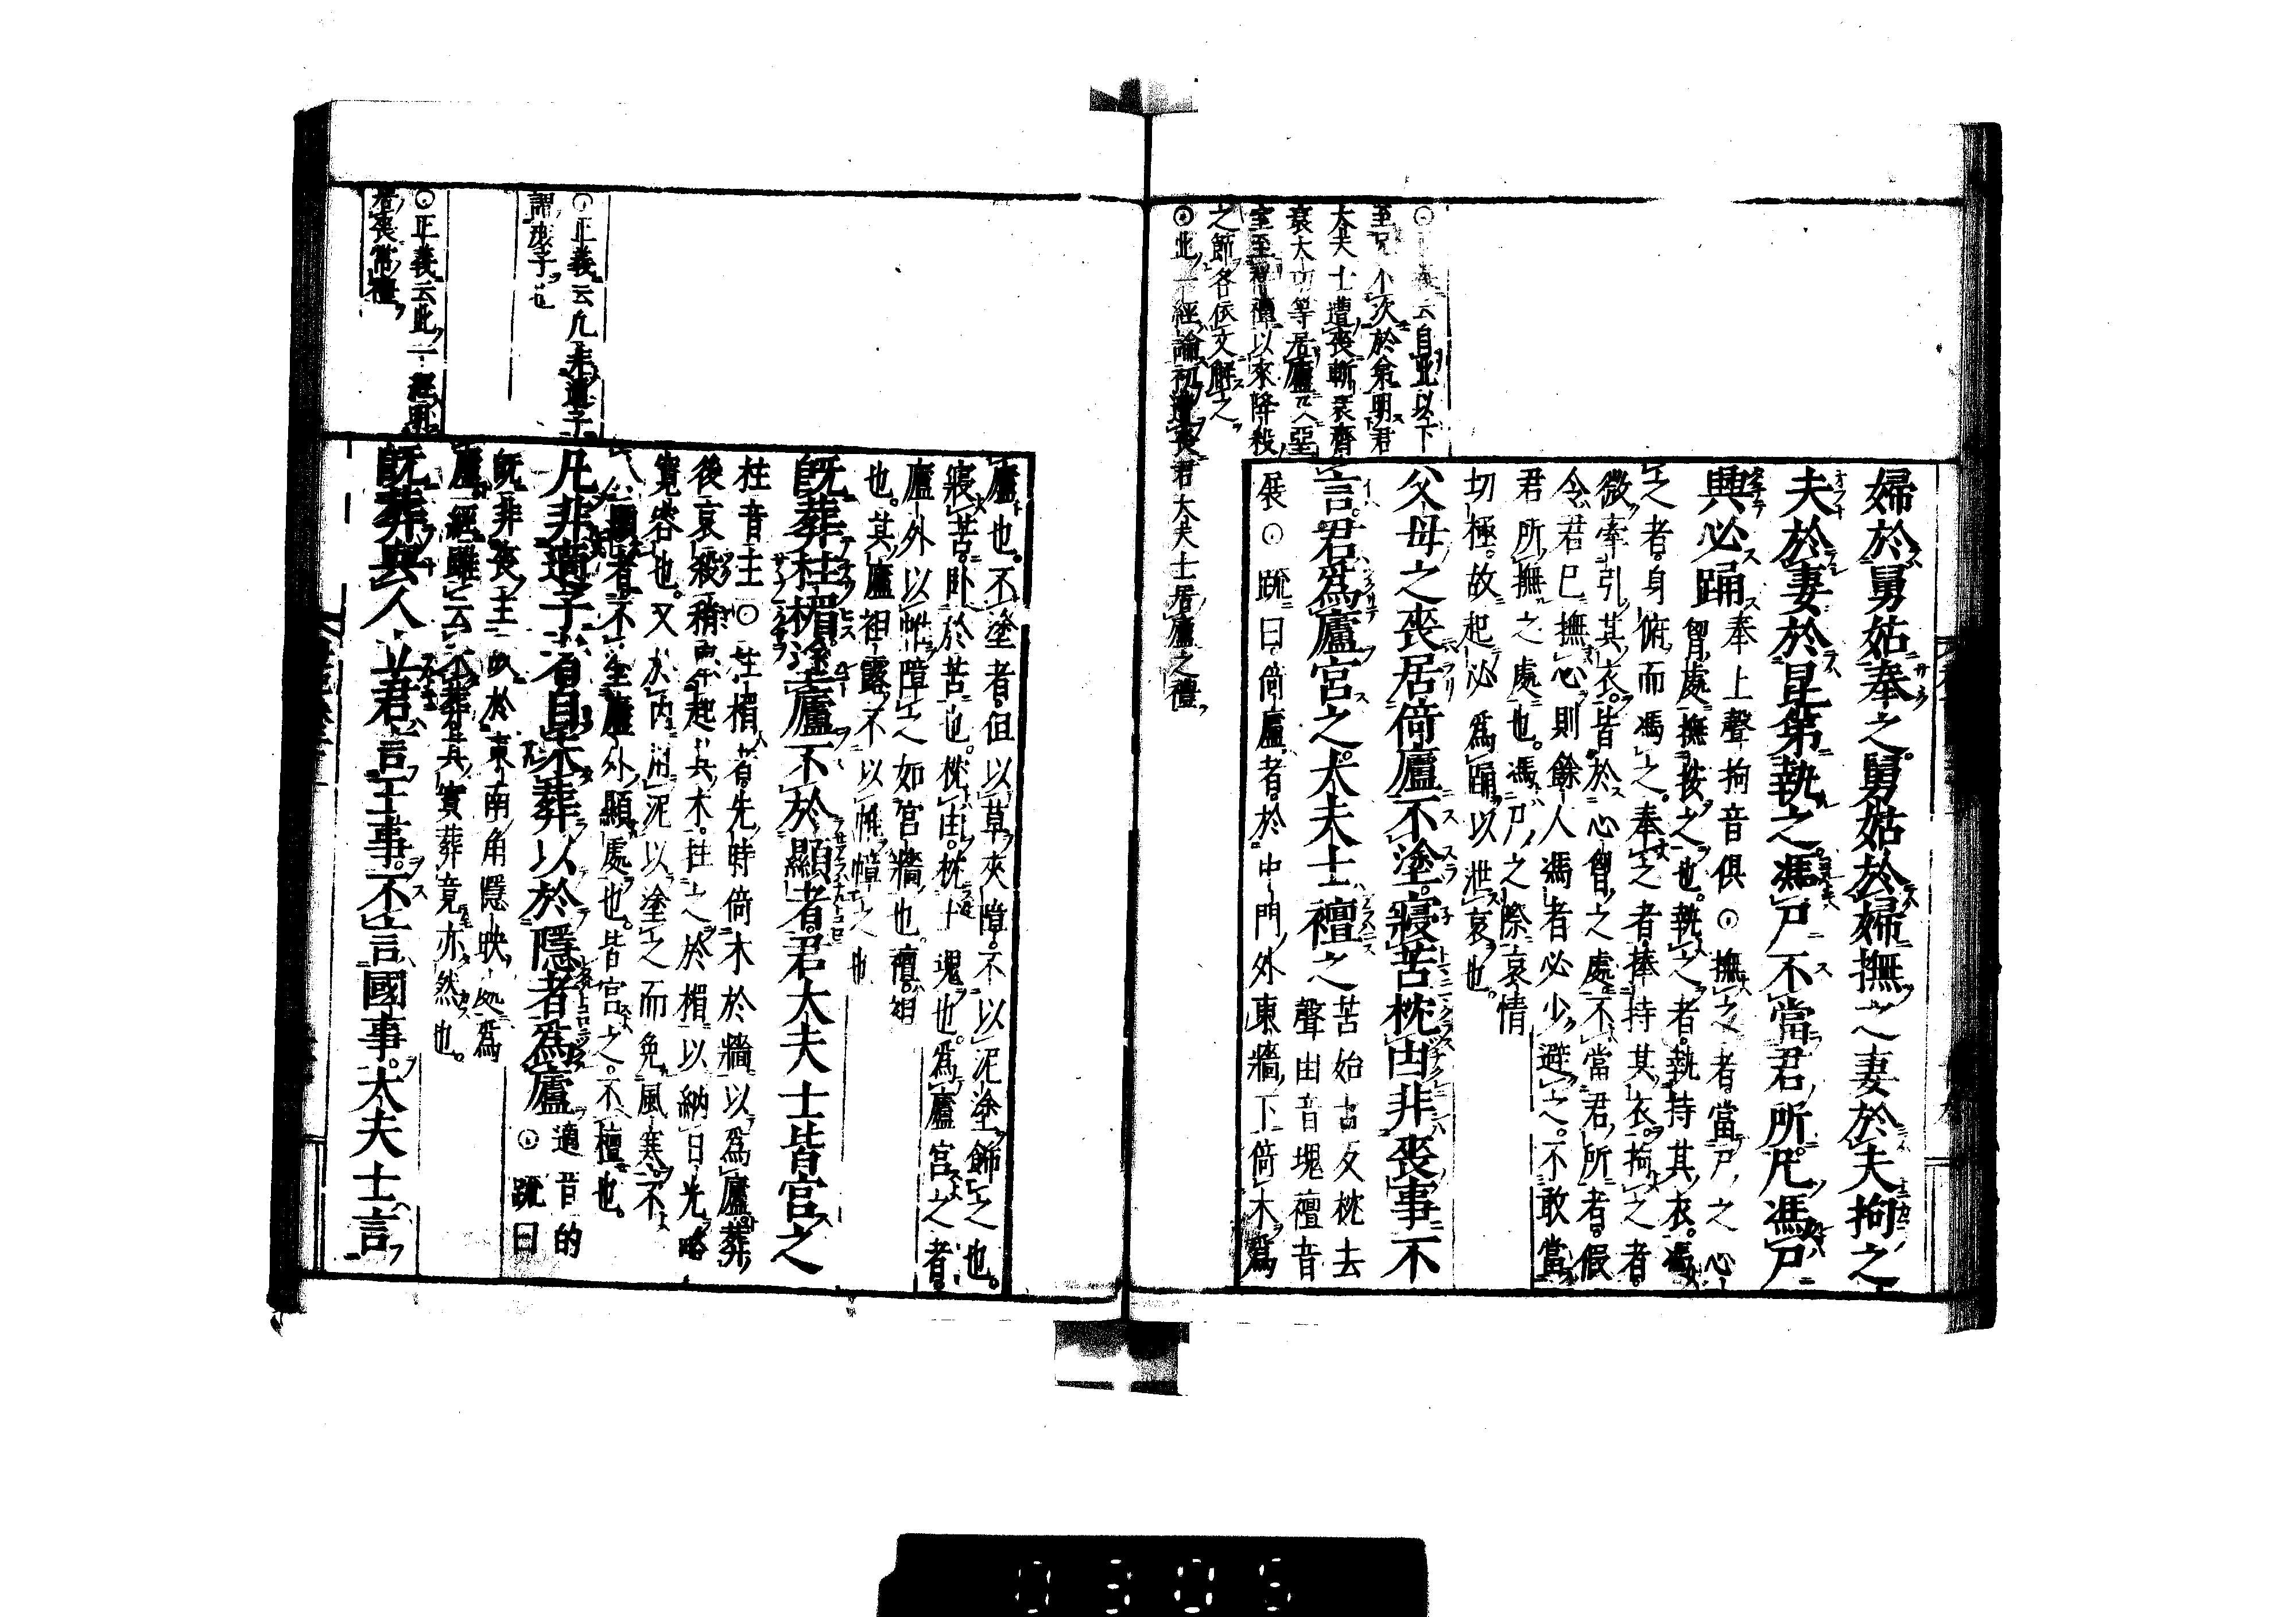 婦於舅姑奉之舅姑於婦撫之妻於夫拘之
夫於妻於昆弟執之馮尸不當君所凡馮尸
興必踊
奉上聲拘音俱○撫之者當尸之心
胷處撫按之也執之者執持其衣馮
之者身俯而馮之奉之者捧持其衣拘之者
微牽引其衣皆於心胷之處不當君所者假
令君已撫心則餘人馮者必少避之不敢當
君所撫之處也馮尸之際哀情
切極故起必爲踊以泄哀也
父母之喪居倚廬不塗寢苫枕凷非喪事不
言君爲廬宮之大夫士襢之
苫始占反枕去
聲凷音塊襢音
展○疏曰倚廬者於中門外東牆下倚木爲
○正義云自此以下
至兄不次於弟明君
大夫士遭喪斬衰齊
衰大功等居廬及堊
室至祥禫以來降殺
之節各依文解之
○此一經論初遭喪君大夫士居廬之禮
廬也不塗者但以草夾障不以泥塗飾之也
寢苫臥於苫也枕凷枕土塊也爲廬宮之者
廬外以帷障之如宮牆也襢袒
也其廬袒露不以帷幛之也
既葬柱楣塗廬不於顯者君大夫士皆宮之
柱音主○柱楣者先時倚木於牆以爲廬葬
後哀殺稍舉起其木柱之於楣以納日光略
寬容也又於内用泥以塗之而免風寒不
於顯者不塗廬外顯處也皆宮之不襢也
凡非適子者自未葬以於隱者爲廬
適音的
○疏曰
既非喪主故於東南角隱映処爲
廬經雖云未葬其實葬竟亦然也
既葬與人立君言王事不言國事大夫士言
○正義云凡非適子
謂庶子也
○正義云此一經明
居喪常禮
0305